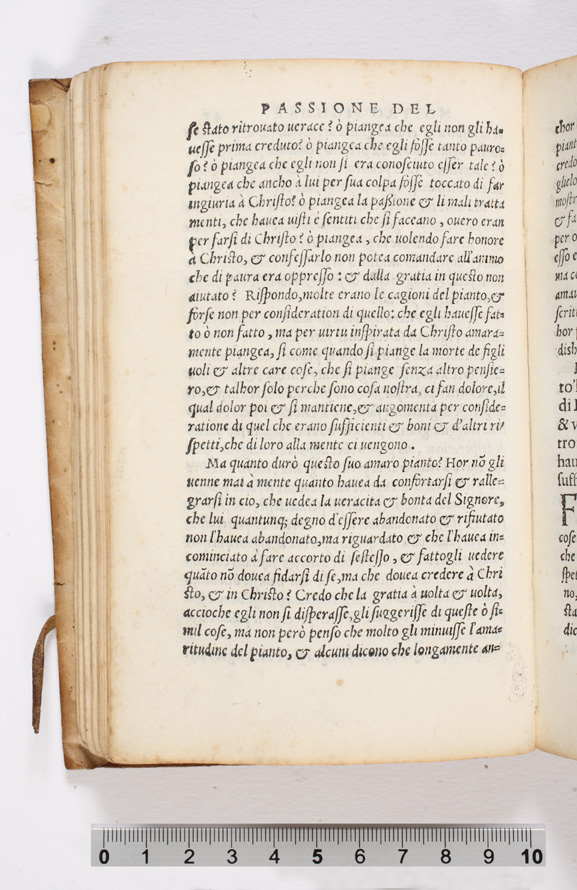 PASSIONE DEL
se stato ritrouato uerace? ò piangea che egli non gli ha-
uesse prima creduto? ò piangea che egli fòsse tanto pauro-
so? ò piangea che egli non si era conosciuto esser tale? ò
piangea che ancho à lui per sua colpa fòsse toccato di far
ingiuria à Christo? ò piangea la passione & li mali tratta
menti, che hauea uisti e sentiti che si faceano, ouero eran
per farsi di Christo? ò piangea, che uolendo fare honore
à Christo, & confessarlo non potea comandare all'animo
che di paura era oppresso: & dalla gratia in questo non
aiutato? Rispondo, molte erano le cagioni del pianto, &
forse non per consideration di quello: che egli hauesse fat-
to ò non fatto, ma per uirtu inspirata da Christo amara-
mente piangea, si come quando si piange la morte de figli
uoli & altre care cose, che si piange senza altro pensie-
ro, & talhor solo perche sono cosa nostra, ci fan dolore, il
qual dolor poi & si mantiene, & augomenta per conside-
ratione di quel che erano sufficienti & boni & d'altri ri/
spetti, che di loro alla mente ci uengono.
Ma quanto durò questo suo amaro pianto? Hor nõ gli
uenne mai à mente quanto hauea da confortarsi & ralle-
grarsi in cio, che uedea la ueracita & bonta del Signore,
che lui quantunq; degno d'essere abandonato & rifiutato
non l'hauea abandonato, ma riguardato & che l'hauea in-
cominciato à fare accorto di sestesso, & fattogli uedere
quãto nõ douea fidarsi di se, ma che douea credere à Chri
sto, & in Christo? Credo che la gratia à uolta & uolta,
accioche egli non si disperasse, gli suggerisse di queste ò si-
mil cose, ma non però penso che molto gli minuisse l'ama-
ritudine del pianto, & alcuni dicono che longamente an-
chor
piant
credo
glielo
mostr
& fa
per o
esso e
ma co
amau
scritt
hor
dish
to'l
di
& v
tro
hau
suff
F
cose
che
spet
no,
sta
dic
0 1 2 3 4 5 6 7 8 9 10